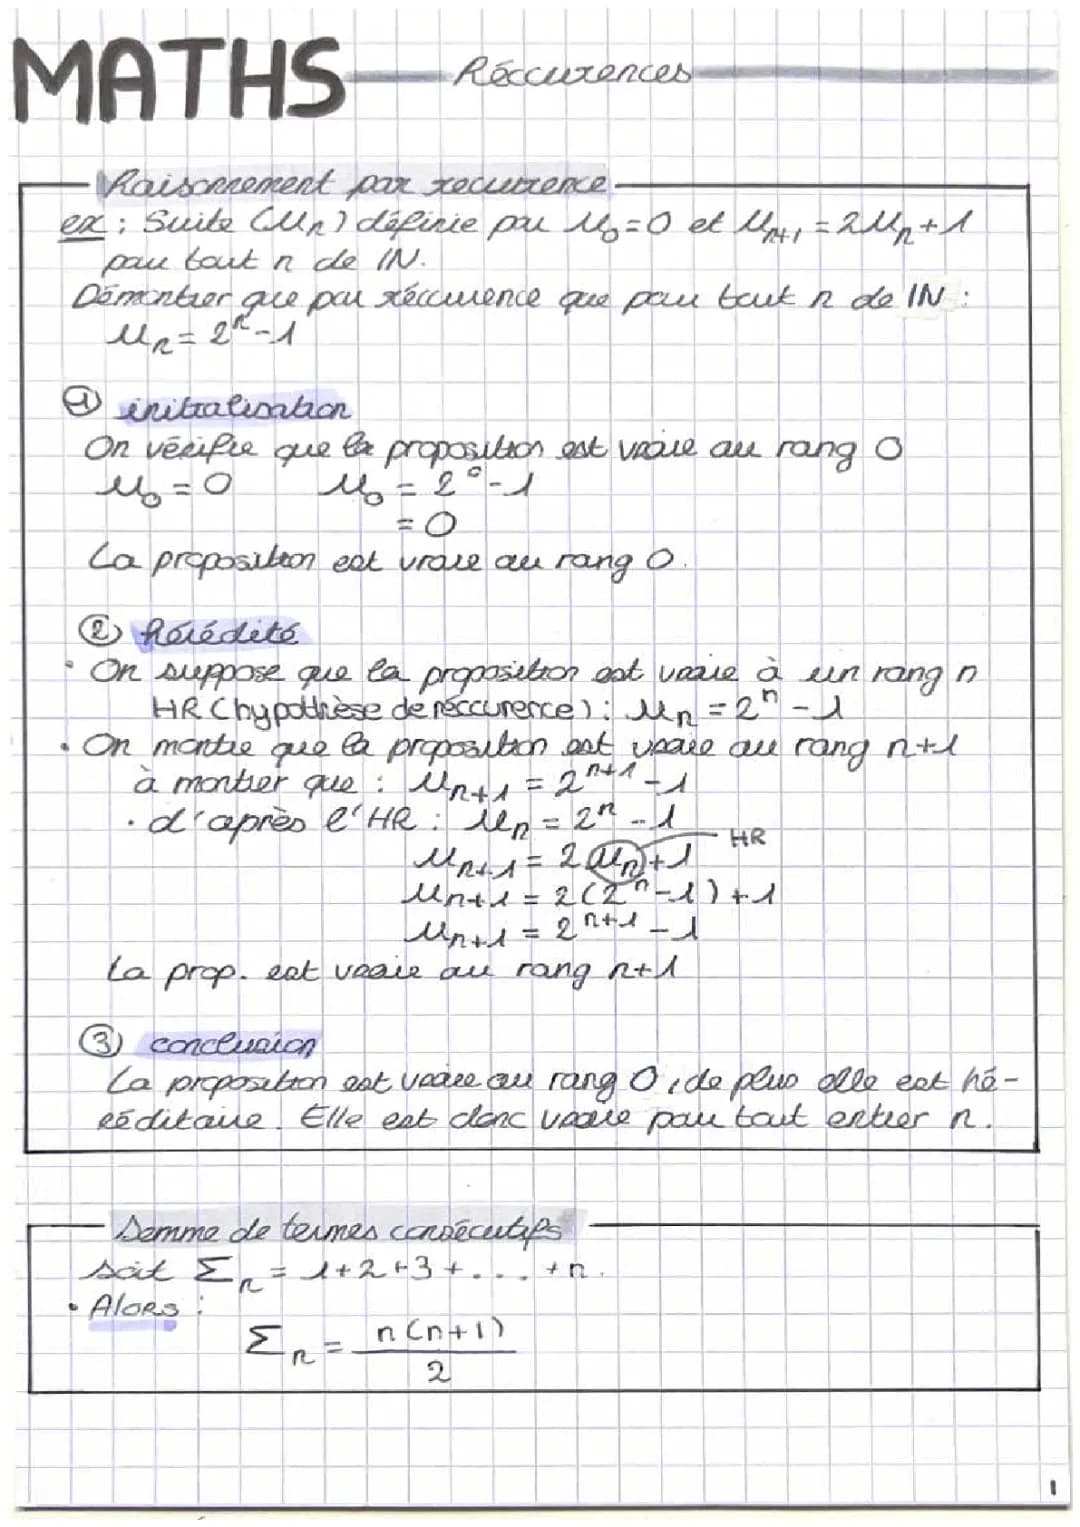 MATHS Réccurences
Raisonnement par recurrence
ex : Suite (Un) définie par U₀=0 et Uₙ₊₁ = 2Uₙ+1
pour tout n de IN.
Démontrer que par réccurence que pour tout n de IN :
Uₙ = 2ⁿ-1
① initialisation
On vérifie que la proposition est vraie au rang 0
U₀ = 0 U₀ = 2⁰-1
= 0
La proposition est vraie au rang 0.
② hérédité
• On suppose que la proposition est vraie à un rang n
HR (hypothèse de réccurence) : Uₙ = 2ⁿ - 1
• On montre que la proposition est vraie au rang n+1
à montrer que : Uₙ₊₁ = 2ⁿ⁺¹ - 1
• d'après l'HR : Uₙ = 2ⁿ - 1
Uₙ₊₁ = 2 Uₙ + 1 HR
Uₙ₊₁ = 2(2ⁿ-1) + 1
Uₙ₊₁ = 2ⁿ⁺¹ - 1
La prop. est vraie au rang n+1
③ conclusion
La proposition est vraie au rang 0, de plus elle est hé-
réditaire. Elle est donc vraie pour tout entier n.
Somme de termes consécutifs
soit Σₙ = 1+2+3+... +n.
• Alors :
Σₙ = n(n+1)
2
1